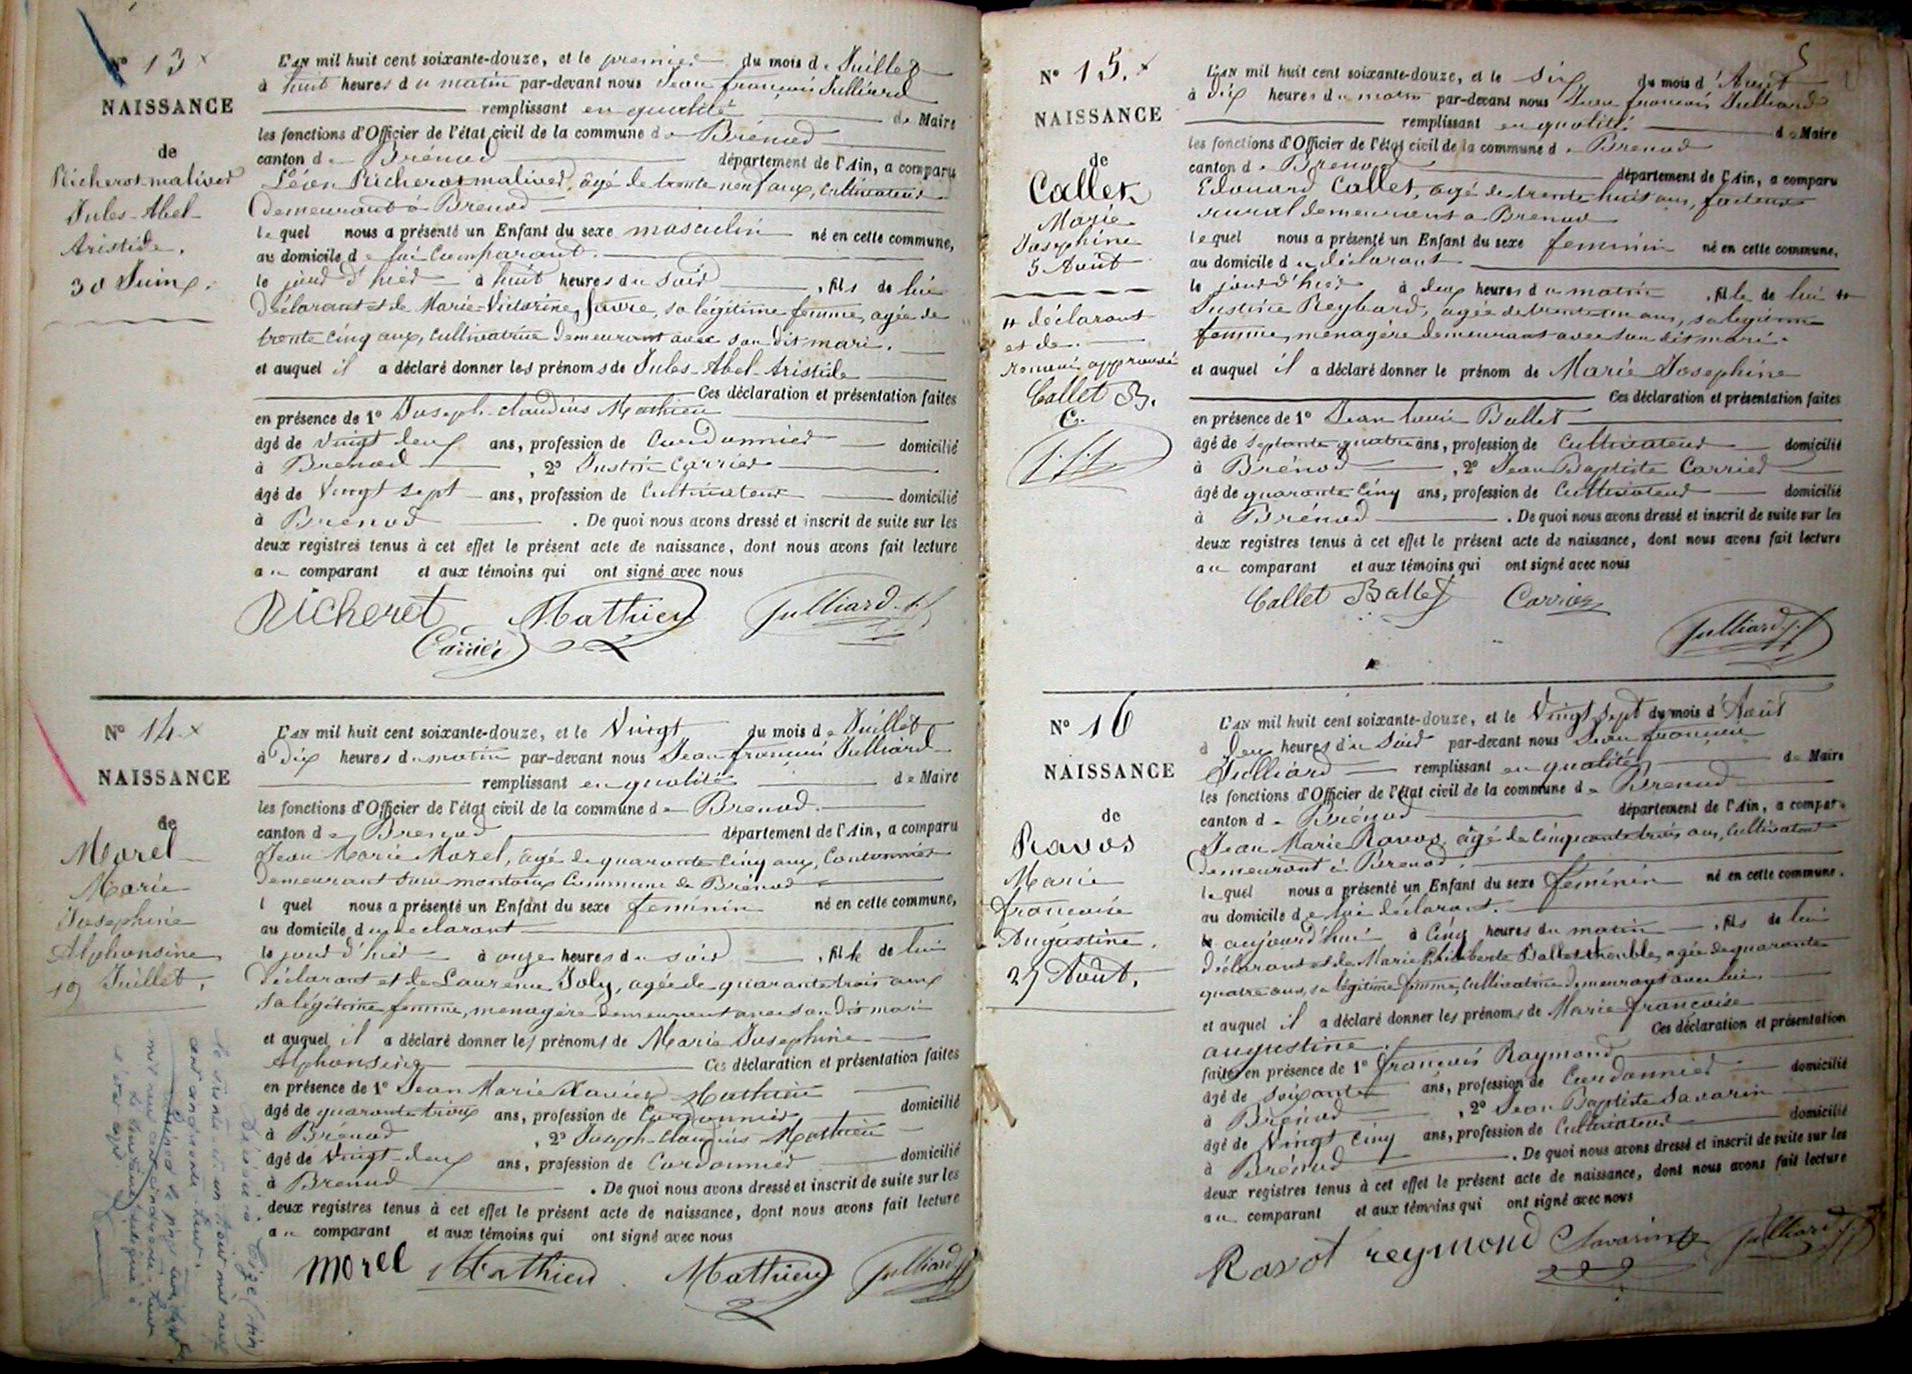 N° 13
NAISSANCE
de
Richerot malivert
Jules-Abel-
Aristide.
30 Juin.
L'AN mil huit cent soixante-douze, et le premier du mois de Juillet
à huit heures du matin par-devant nous Jean françois Julliard
remplissant en qualité de Maire
les fonctions d'Officier de l'état civil de la commune de Brénod
canton de Brénod département de l'Ain, a comparu
Léon Richerot malivert, âgé de trente neuf ans, cultivateur
demeurant à Brenod
lequel nous a présenté un Enfant du sexe masculin né en cette commune,
au domicile de lui Comparant.
le jour d'hier à huit heures du soir, fils de lui
Déclarant et de Marie-Victorine Favre, sa légitime femme, agée de
trente cinq ans, cultivatrice demeurant avec son dit mari.
et auquel il a déclaré donner les prénoms de Jules-Abel-Aristide
Ces déclaration et présentation faites
en présence de 1° Joseph-claudius Mathieu
âgé de vingt deux ans, profession de Cordonnier domicilié
à Brenod, 2° Justin Carrier
âgé de Vingt sept ans, profession de Cultivateur domicilié
à Brénod. De quoi nous avons dressé et inscrit de suite sur les
deux registres tenus à cet effet le présent acte de naissance, dont nous avons fait lecture
au comparant et aux témoins qui ont signé avec nous
Richerot Mathieu Julliard j.f.
Carrier
N° 14
NAISSANCE
de
Morel
Marie
Josephine
Alphonsine
19 Juillet.
L'AN mil huit cent soixante-douze, et le Vingt du mois de Juillet
à Dix heures du matin par-devant nous Jean françois Julliard
remplissant en qualité de Maire
les fonctions d'Officier de l'état civil de la commune de Brenod.
canton de Brenod département de l'Ain, a comparu
Jean Marie Morel, âgé de quarante cinq ans, Cantonnier
demeurant commune de Brénod
lquel nous a présenté un Enfant du sexe feminin né en cette commune,
au domicile du declarant
le jour d'hier à onze heures du soir, fille de lui
Déclarant et de Laurence Joly, agée de quarante trois ans
sa légitime femme, menagère demeurant avec son dit mari
et auquel il a déclaré donner les prénoms de Marie Josephine
Alphonsine Ces déclaration et présentation faites
en présence de 1° Jean Marie Xavier Mathieu
âgé de quarante trois ans, profession de Cordonnier domicilié
à Brénod, 2° Joseph-claudius Mathieu
âgé de Vingt-deux ans, profession de Cordonnier domicilié
à Brenod. De quoi nous avons dressé et inscrit de suite sur les
deux registres tenus à cet effet le présent acte de naissance, dont nous avons fait lecture
au comparant et aux témoins qui ont signé avec nous
morel Mathieu Mathieu Julliard jf
5
N° 15.
NAISSANCE
de
Callet
Marie
Josephine
5 Août
# déclarant
et de.
renvoi approuvé
Callet B.
C.
j.f.J
L'AN mil huit cent soixante-douze, et le six du mois d'Août
à Dix heures du matin par-devant nous Jean françois Julliard
remplissant en qualité de Maire
les fonctions d'Officier de l'état civil de la commune de Brenod
canton de Brenod département de l'Ain, a comparu
Edouard Callet, agé de trente huit ans, facteur
rural demeurant à Brenod
lequel nous a présenté un Enfant du sexe feminin né en cette commune,
au domicile du déclarant
le jour d'hier à deux heures du matin, fille de lui #
Justine Reybard, agée de trente un ans, sa légitime
femme, ménagère demeurant avec son dit mari.
et auquel il a déclaré donner le prénom de Marie Josephine
Ces déclaration et présentation faites
en présence de 1° Jean louis Ballet
âgé de septante quatre ans, profession de Cultivateur domicilié
à Brénod, 2° Jean Baptiste Carrier
âgé de quarante cinq ans, profession de Cultivateur domicilié
à Brénod. De quoi nous avons dressé et inscrit de suite sur les
deux registres tenus à cet effet le présent acte de naissance, dont nous avons fait lecture
au comparant et aux témoins qui ont signé avec nous
Callet Ballet Carrier
Julliard j.f
N° 16
NAISSANCE
de
Ravos
Marie
francoise
Augustine.
27 Août.
L'AN mil huit cent soixante-douze, et le Vingt sept du mois d'Août
à Deux heures du soir par-devant nous Jean françois
Julliard remplissant en qualité de Maire
les fonctions d'Officier de l'état civil de la commune de Brenod
canton de Brénod département de l'Ain, a comparu
Jean Marie Ravos, âgé de cinquante trois ans, cultivateur
demeurant à Brenod.
lequel nous a présenté un Enfant du sexe féminin né en cette commune.
au domicile de lui déclarant.
aujourd'hui à Cinq heures du matin, fils de lui
déclarant et de Marie agée de quarante
quatre ans, sa légitime femme, cultivatrice demeurant avec lui
et auquel il a déclaré donner les prénoms de Marie françoise
augustine. Ces déclaration et présentation
faites en présence de 1° françois Raymond
âgé de soixante ans, profession de Cordonnier domicilié
à Brénod, 2° Jean Baptiste Savarin
âgé de Vingt cinq ans, profession de Cultivateur domicilié
à Brénod. De quoi nous avons dressé et inscrit de suite sur les
deux registres tenus à cet effet le présent acte de naissance, dont nous avons fait lecture
au comparant et aux témoins qui ont signé avec nous
Ravot reymond Savarin Julliard j.f